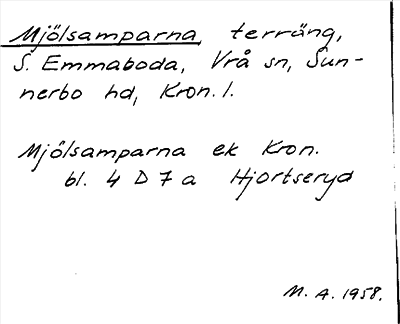 Mjölsamparna, terräng,
S. Emmaboda, Vrå sn, Sun-
nerbo hd, Kron. l.
Mjölsamparna ek Kron.
bl. 4 D 7 a Hjortseryd
M. A. 1958.